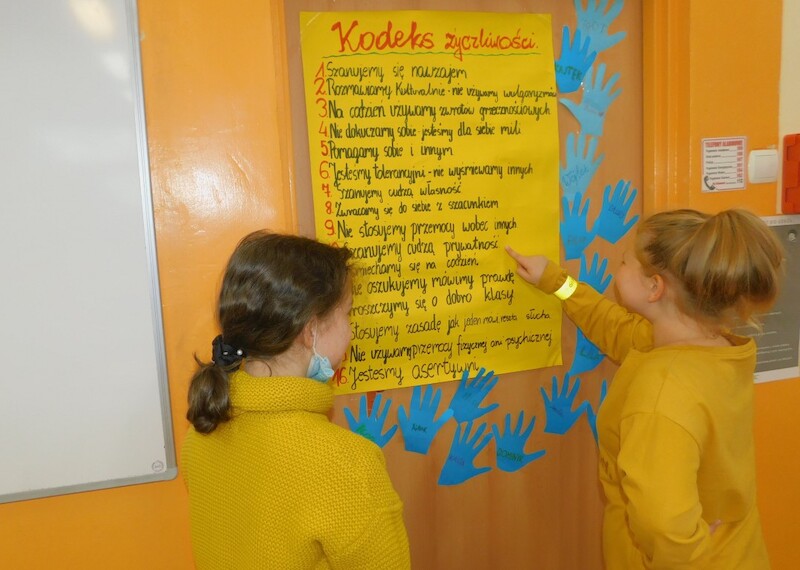 Kodeks życzliwości.
1. Szanujemy się nawzajem
2. Rozmawiamy kulturalnie - nie używamy wulgaryzmów
3. Na codzień używamy zwrotów grzecznościowych
4. Nie dokuczamy sobie jesteśmy dla siebie mili
5. Pomagamy sobie i innym
6. Jesteśmy tolerancyjni - nie wyśmiewamy innych
7. Szanujemy cudzą własność
8. Zwracamy się do siebie z szacunkiem
9. Nie stosujemy przemocy wobec innych
Szanujemy cudzą prywatność
miechamy się na codzień
oszukujemy mówimy prawdę
roszczymy się o dobro klasy
Stosujemy zasadę jak jeden mówi reszta słucha
Nie używamy przemocy fizycznej ani psychicznej
16. Jesteśmy asertywni